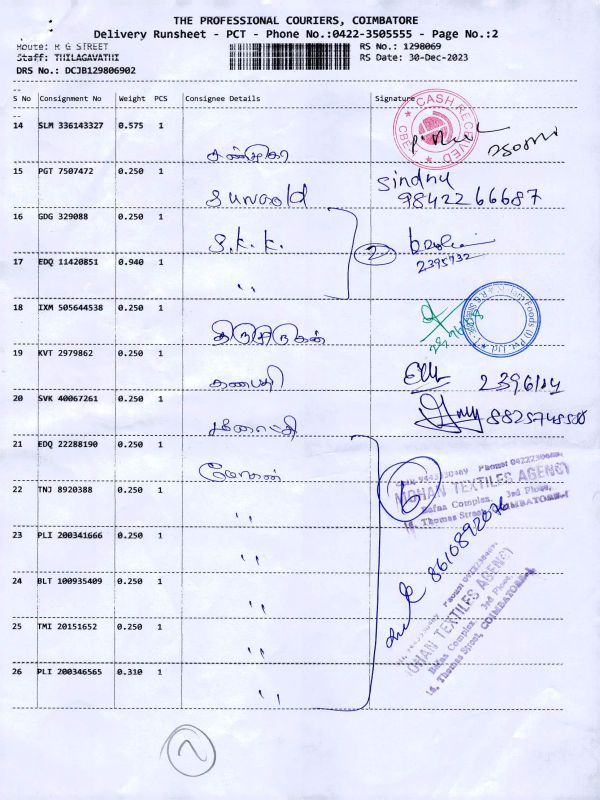 THE PROFESSIONAL COURIERS, COIMBATORE
Delivery Runsheet - PCT - Phone No.:0422-3505555 - Page No.:2
Route: R G STREET
Staff: THILAGAVATHI
DRS No.: DCJB129806902
RS No.: 1298069
RS Date: 30-Dec-2023
S No Consignment No Weight PCS Consignee Details Signature
14 SLM 336143327 0.575 1
CASH RECEIVED
CBE
15 PGT 7507472 0.250 1
Sindhu
98422 66687
16 GDG 329088 0.250 1
S.K.K.
2
2395932
17 EDQ 11420851 0.940 1
"
18 IXM 505644538 0.250 1
19 KVT 2979862 0.250 1
கணபதி
20 SVK 40067261 0.250 1
21 EDQ 22288190 0.250 1
மோகன்
6
MOHAN TEXTILES AGENCY
Bafna Complex, 3rd Floor,
16, Thomas Street, COIMBATORE-1
22 TNJ 8920388 0.250 1
"
23 PLI 200341666 0.250 1
"
8610892076
24 BLT 100935409 0.250 1
"
MOHAN TEXTILES AGENCY
Bafna Complex, 3rd Floor,
16, Thomas Street, COIMBATORE-1
25 TMI 20151652 0.250 1
"
26 PLI 200346565 0.310 1
"
2